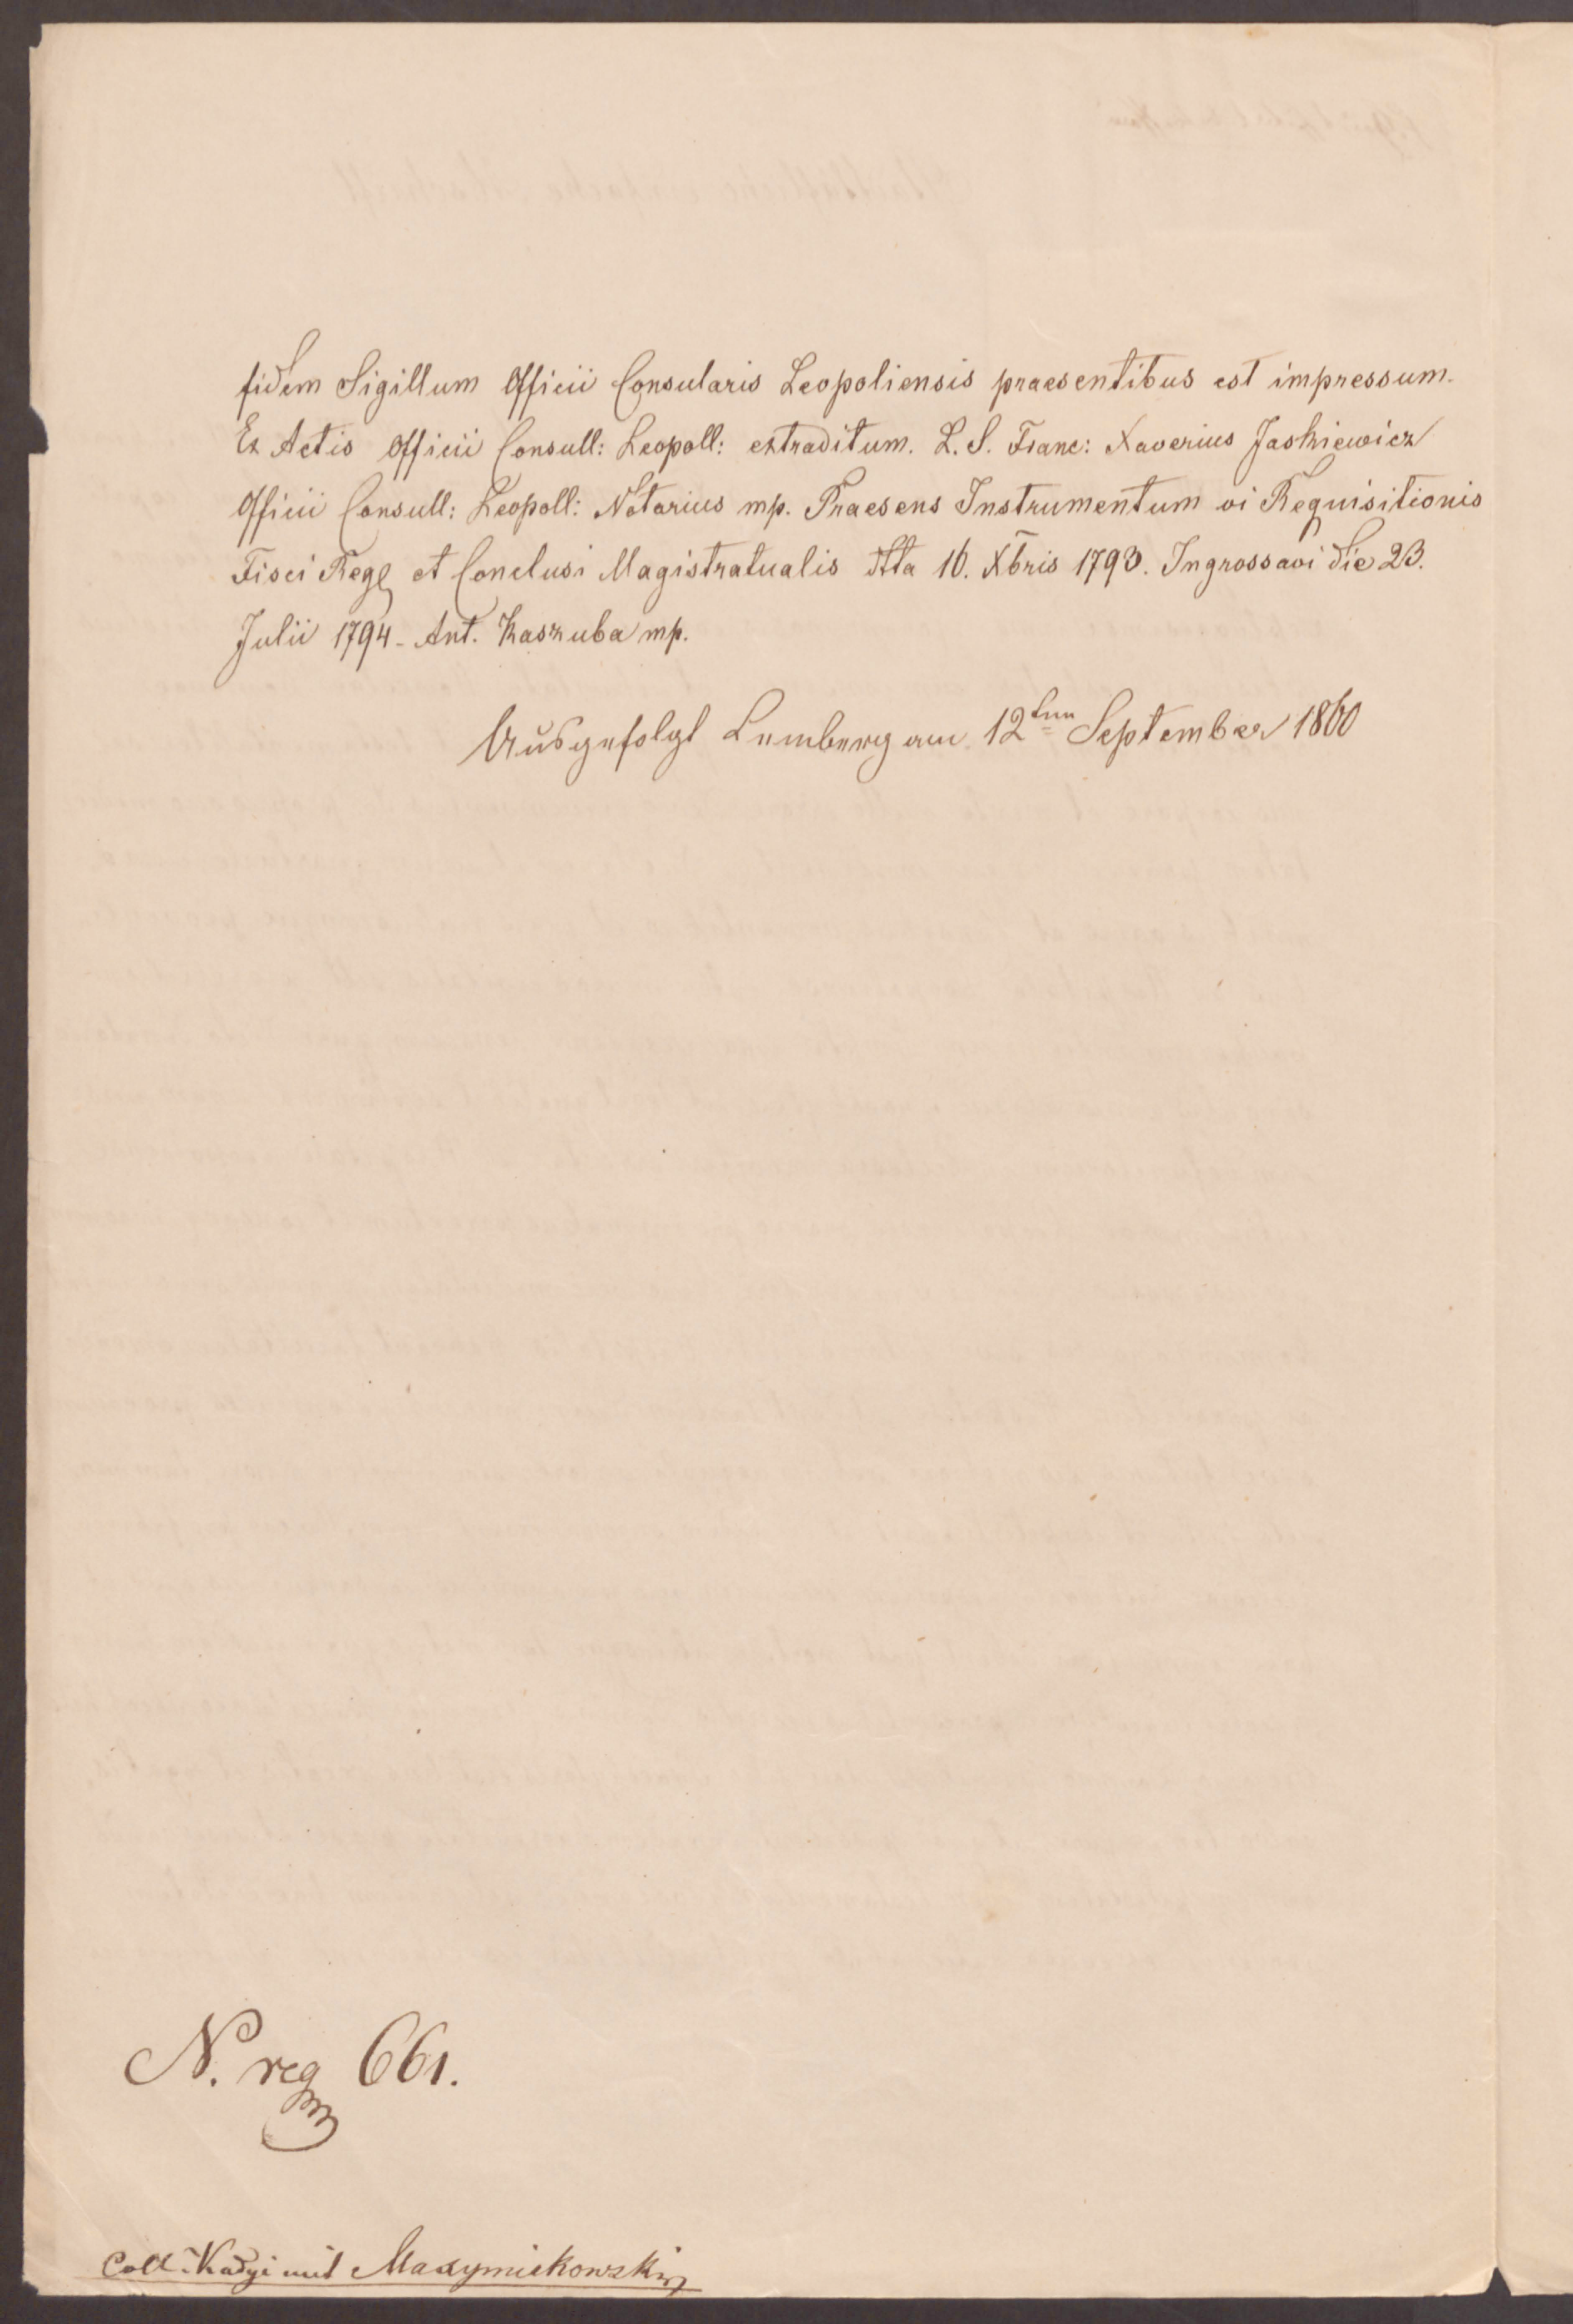 fidem Sigillum Officii Consularis Leopoliensis praesentibus est impressum.
Ex Actis Officii Consull: Leopoll: extraditum. L. S. Franc: Xaverius Jaskiewicz
Officii Consull: Leopoll: Notarius mp. Praesens Instrumentum vi Requisitionis
Fisci Reg et Conclusi Magistratualis dtta 16. Xbris 1793. Ingrossavi die 23.
Julii 1794 - Ant. Kaszuba mp.
Ausgefolgt Lemberg am 12ten September 1860
N. reg 661.
Coll. Kadyi mit Maxymiekowski